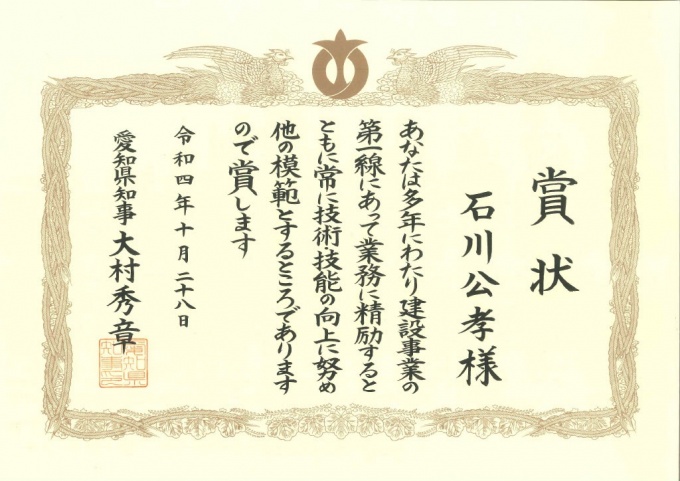 賞状
石川公孝様
あなたは多年にわたり建設事業の
第一線にあって業務に精励すると
ともに常に技術・技能の向上に努め
他の模範とするところであります
ので賞します
令和四年十月二十八日
愛知県知事 大村秀章